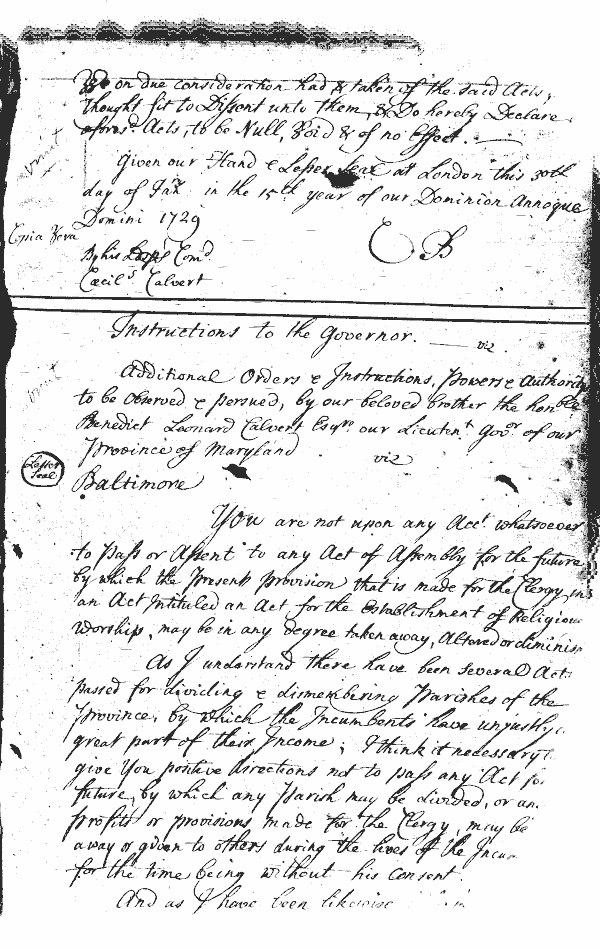 We on due consideration had & taken of the said Acts,
thought fit to Dissent unto them, & Do hereby Declare
afores.d Acts, to be Null, Void & of no Effect.
Given our Hand & Lesser Seal at London this 30th
day of Jan.ry in the 15th year of our Dominion Annoque
Domini 1729
Copia Vera
C B
By his Ldps Com.d
Cæcil.s Calvert
Instructions to the Governor. viz.
Additional Orders & Instructions, Powers & Authority
to be Observed & persued, by our beloved brother the hon.ble
Benedict Leonard Calvert Esq.re our Lieuten.t Gov.or of our
Province of Maryland viz
Lesser
Seal
Baltimore
You are not upon any Acct. whatsoever
to pass or Assent to any Act of Assembly for the future
by which the Present provision that is made for the Clergy, in
an Act Intituled an Act for the Establishment of Religious
Worship, may be in any degree taken away, Altered or diminis
As I understand there have been several Acts
passed for dividing & dismembering Parishes of the
Province, by which the Incumbents have unjustly
great part of their Income; I think it necessary t
give You positive directions not to pass any Act for
future, by which any Parish may be divided, or an
profits or provisions made for the Clergy, may be
away or given to others during the lives of the Incu
for the time being without his consent.
And as I have been likewise